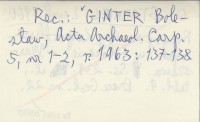 Rec.: "GINTER Bole-
sław, Acta Archaeol. Carp.
5, nr 1-2, r. 1963: 137-138